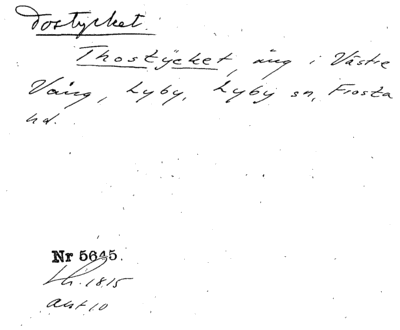 Tostycket.
Thostycket, äng i Västre
Vång, Lyby, Lyby sn, Frosta
hd.
Nr 5645.
Lh. 1815
akt 10